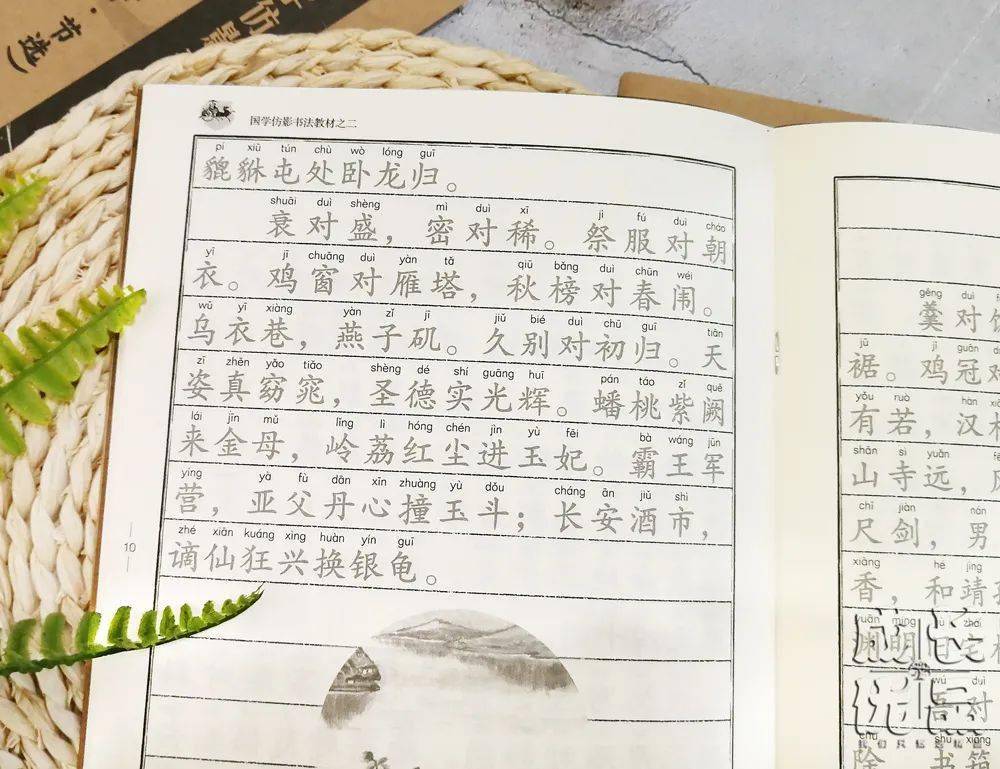 节选)
国学仿影书法教材之二
pí xiū tún chù wò lóng guī
貔貅屯处卧龙归。
shuāi duì shèng mì duì xī jì fú duì cháo
衰对盛，密对稀。祭服对朝
yī jī chuāng duì yàn tǎ qiū bǎng duì chūn wéi
衣。鸡窗对雁塔，秋榜对春闱。
wū yī xiàng yàn zǐ jī jiǔ bié duì chū guī tiān
乌衣巷，燕子矶。久别对初归。天
zī zhēn yǎo tiǎo shèng dé shí guāng huī pán táo zǐ quē
姿真窈窕，圣德实光辉。蟠桃紫阙
lái jīn mǔ lǐng lì hóng chén jìn yù fēi bà wáng jūn
来金母，岭荔红尘进玉妃。霸王军
yíng yà fù dān xīn zhuàng yù dǒu cháng ān jiǔ shì
营，亚父丹心撞玉斗；长安酒市，
zhé xiān kuáng xìng huàn yín guī
谪仙狂兴换银龟。
10
gēng duì
羹对
jū jī guān
裾。鸡冠对
yǒu ruò hàn
有若，汉
shān sì yuǎn
山寺远，
chǐ jiàn nán
尺剑，男
xiāng hé jìng
香，和靖
yuān míng zhái
渊明宅
wú duì
吾对
chú shū xiāng
除书箱